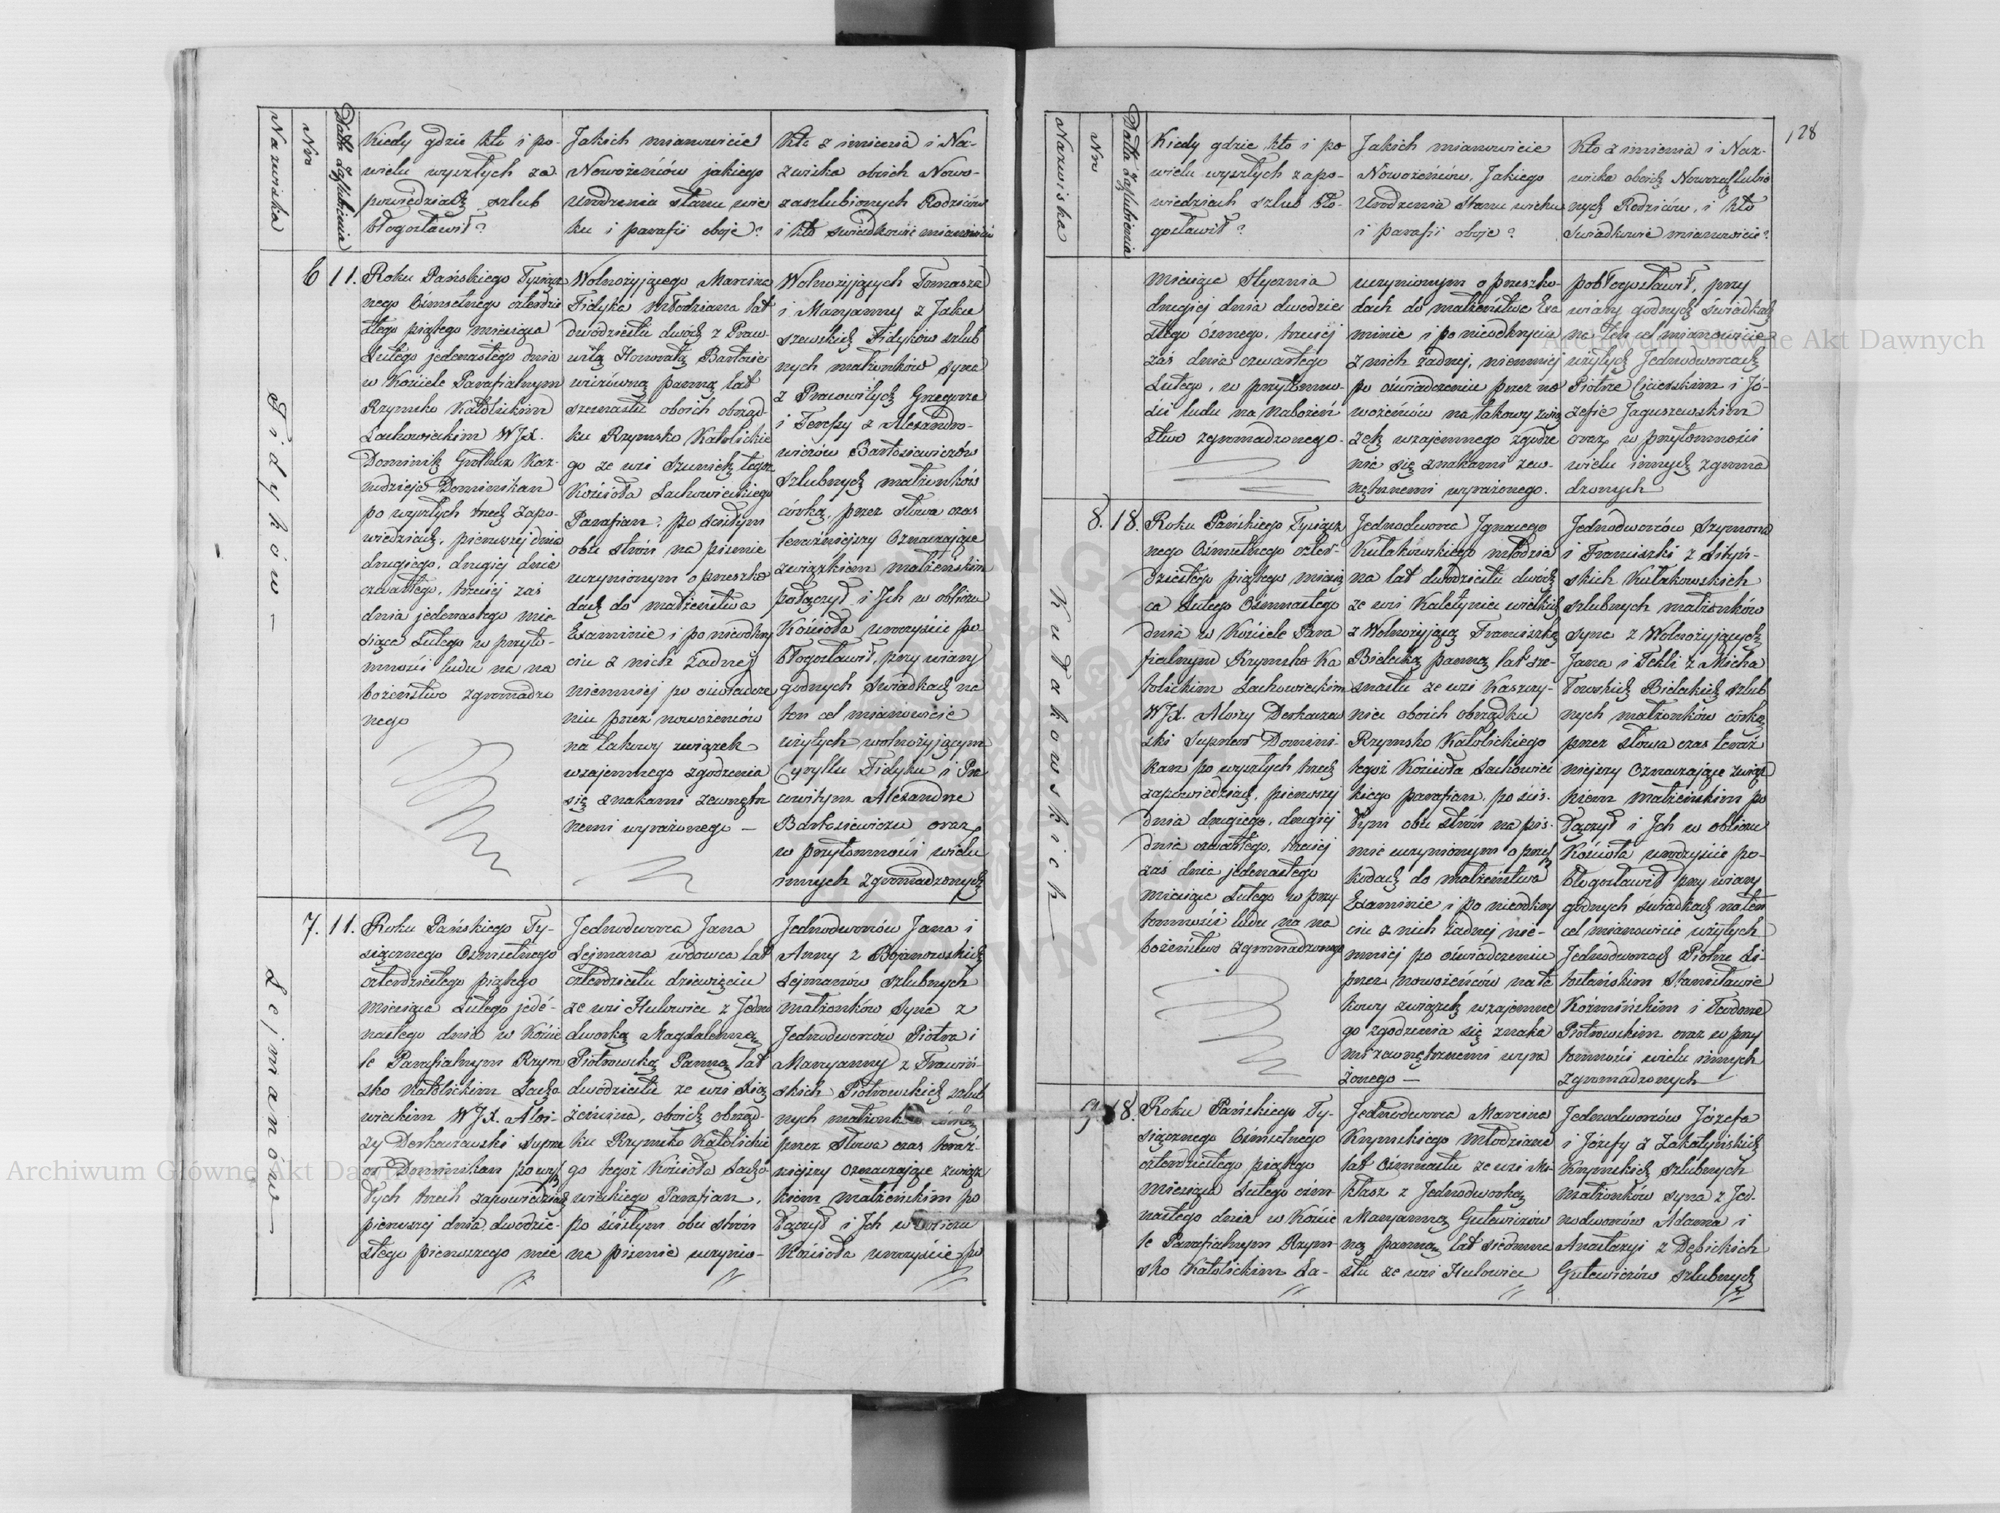 128
Nazwiska
Nro
Data Zaślubienia
Kiedy gdzie kto i po
wielu wyszłych za
powiedziach szlub
błogosławił?
Jakich mianowicie
Nowożeńców jakiego
urodzenia stanu wie
ku i parafii oboje?
Kto z imienia i Na-
zwiska obóich Nowo-
zaszlubionych Rodziców
i kto świadkowie mianowicie
Fidyków –
6
11.
Roku Pańskiego Tysiącz
nego Ośmsetnego czterdzie
stego piątego miesiąca
Lutego jedenastego dnia
w Kościele Parafialnym
Rzymsko Katolickim
Lachowieckim WJX.
Dominik
Kaz-
nodzieja Dominikan
po wyszłych trzech zapo-
wiedziach, pierwszej dnia
drugiego, drugiej dnia
czwartego, trzeciej zaś
dnia jedenastego mie-
siąca Lutego w przyto-
mności ludu na na
bożeństwo zgromadzo
nego
Wolnożyjącego Marcina
Fidyka Młodziana lat
dwódziestu dwóch z Praco
witą Honoratą Bartosie
wiczówną panną lat
szesnastu oboich obrząd-
ku Rzymsko Katolickie
go ze wsi
tegoż
Kościoła Lachowieckiego
Parafian, po ścisłym
obu stron na piśmie
uczynionym o przeszko
dach do małżeństwa
Examinie i po nieodkry
ciu z nich żadnej
niemniej po oświadcze
niu przez nowożeńców
na takowy związek
wzajemnego zgodzenia
się znakami zewnętrz
nemi wyrażonego –
Wolnożyjących Tomasza
i Maryanny z Jaku
szewskich Fidyków szlub
nych małżonków syna
z Pracowitych Grzegorza
i Teressy z Alexandro-
wiczów Bartosiewiczów
szlubnych małżonków
córką, przez słowa czas
teraźniejszy oznaczające
związkiem małżeńskim
połączył i Ich w obliczu
Kościoła uroczyście po
błogosławił, przy wiary
godnych świadkach na
ten cel mianowicie
użytych wolnożyjącym
Cyryllu Fidyku i Pra
cowitym Alexandrze
Bartosiewiczu oraz
w przytomności wielu
innych zgromadzonych
Lejmanów –
7.
11.
Roku Pańskiego Ty-
siącznego Ośmsetnego
czterdziestego piątego
Miesiąca Lutego jede-
nastego dnia w Kości
le Parafialnym Rzym
sko Katolickim Lacho
wieckim WJX. Aloi-
zy Derkaczewski Supre
or Dominikan po wysz
łych trzech zapowiedziach
pierwszej dnia dwodzie-
stego pierwszego mie
Jednodworca Jana
Lejmana wdowca lat
czterdziestu dziewięciu
ze wsi Hulowiec z Jedno
dworką Magdaleną
Piotrowską Panną lat
dwódziestu ze wsi
oboich obrząd-
ku Rzymsko Katolickie
go tegoż Kościoła Lacho
wieckiego Parafian,
po ścisłym obu stron
na piśmie uczynio-
Jednodworców Jana i
Anny z Bojanowskich
Lejmanów szlubnych
małżonków syna z
Jednodworców Piotra i
Maryanny z
skich Piotrowskich szlub
nych małżonków córką
przez słowa czas teraź-
niejszy oznaczające związ
kiem małżeńskim po
łączył i Ich w obliczu
Kościoła uroczyście po
Nazwiska
Nro
Data Zaślubienia
Kiedy gdzie kto i po
wielu wyszłych zapo-
wiedziach szlub bło-
gosławił?
Jakich mianowicie
Nowożeńców, Jakiego
Urodzenia stanu wieku
i parafii oboje?
Kto z imienia i Naz-
wiska oboich Nowozaszlubio
nych Rodziców, i kto
świadkowie mianowicie?
Miesiąca Stycznia
drugiej dnia dwodzie
stego ósmego, trzeciej
zaś dnia czwartego
Lutego, w przytomno-
ści ludu na nabożeń
stwo zgromadzonego.
uczynionym o przeszko-
dach do małżeństwa Exa
minie i po nieodkryciu
z nich żadnej, niemniej
po oświadczeniu przez no
wożeńców na takowy zwią
zek wzajemnego zgodze
nia się znakami zew-
nętrznemi wyrażonego.
pobłogosławił, przy
wiary godnych świadkach
na ten cel mianowicie
użytych Jednodworcach
Piotrze
i Jó-
zefie Jaguszewskim
oraz w przytomności
wielu innych zgroma
dzonych
Kułakowskich –
8.
18.
Roku Pańskiego Tysiącz
nego Ośmsetnego czter-
dziestego piątego miesią
ca Lutego Ośmnastego
dnia w Kościele Para
fialnym Rzymsko Ka
tolickim Lachowieckim
WJX. Aloizy Derkaczew
ski Supreor Domini
kan po wyszłych trzech
zapowiedziach, pierwszej
dnia drugiego, drugiej
dnia czwartego, trzeciej
zaś dnia jedenastego
miesiąca Lutego w przy
tomności ludu na na
bożeństwo zgromadzonego
Jednodworca Ignacego
Kułakowskiego młodzia
na lat dwódziestu dwóch
ze wsi Kaletyniec wielkich
z Wolnożyjącą Franciszką
Bielecką panną lat sze-
snastu ze wsi
niec oboich obrządku
Rzymsko Katolickiego
tegoż Kościoła Lachowiec
kiego parafian, po ściś-
łym obu stron na piś-
mie uczynionym o przesz
kodach do małżeństwa
Examinie i po nieodkry
ciu z nich żadnej nie-
mniej po oświadczeniu
przez nowożeńców na ta
kowy związek wzajemne
go zgodzenia się znaka
mi zewnętrznemi wyra
żonego –
Jednodworców Szymona
i Franciszki z
skich Kułakowskich
szlubnych małżonków
syna z Wolnożyjących
Jana i Tekli z Micha
łowskich Bieleckich szlub
nych małżonków córką
przez słowa czas teraź
niejszy oznaczające związ
kiem małżeńskim po
łączył i Ich w obliczu
Kościoła uroczyście po-
błogosławił przy wiary
godnych świadkach na ten
cel mianowicie użytych
Jednodworcach Piotrze
Stanisławie
Koźmińskim i Teodorze
Piotrowskim oraz w przy
tomności wielu innych
zgromadzonych
9.
18.
Roku Pańskiego Ty-
siącznego Ośmsetnego
czterdziestego piątego
Miesiąca Lutego ośm-
nastego dnia w Kości
le Parafialnym Rzym-
sko Katolickim La-
Jednodworca Marcina
Krymskiego Młodziana
lat Ośmnastu ze wsi
z Jednodworką
Maryanną Gutowiczów
ną panną lat siedmna
stu ze wsi Hulowiec
Jednodworców Józefa
i Józefy z Zakatyńskich
Krymskich szlubnych
małżonków syna z Jed-
nodworców Adama i
Anastazyi z Dębickich
Gutowiczów szlubnych
Archiwum Główne Akt Dawnych
Archiwum Główne Akt Dawnych